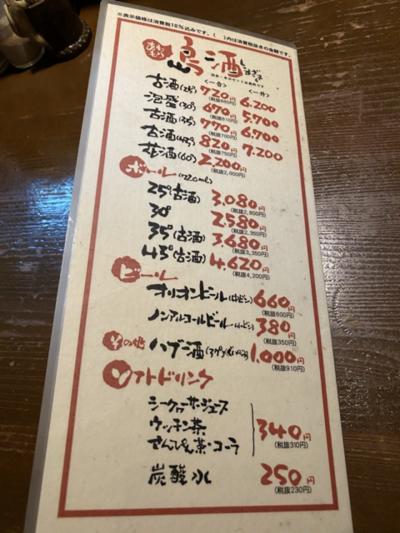 ※表示価格は消費税10%込みです。( )内は消費税抜きの金額です。
島酒
しまざき
〈一合〉 〈一升〉
古酒(25°) 720円 6.200
泡盛(30°) 670円 5.700
古酒(35°) 770円 6.700
(税抜700円)
古酒(43°) 820円 7.200
(税抜750円)
花酒(60°) 2.200円
(税抜2,000円)
ボトル(720ml)
25°(古酒) 3.080円
(税抜2,800円)
30° 2.580円
(税抜2,350円)
35°(古酒) 3.680円
(税抜3,350円)
43°(古酒) 4.620円
(税抜4,200円)
ビール
オリオンビール(中ビン) 660円
(税抜600円)
ノンアルコールビール(小ビン) 380円
(税抜350円)
その他 ハブ酒 1.000円
(税抜910円)
ソフトドリンク
シークヮーサージュース
ウッチン茶
さんぴん茶・コーラ
340円
(税抜310円)
炭酸水 250円
(税抜230円)